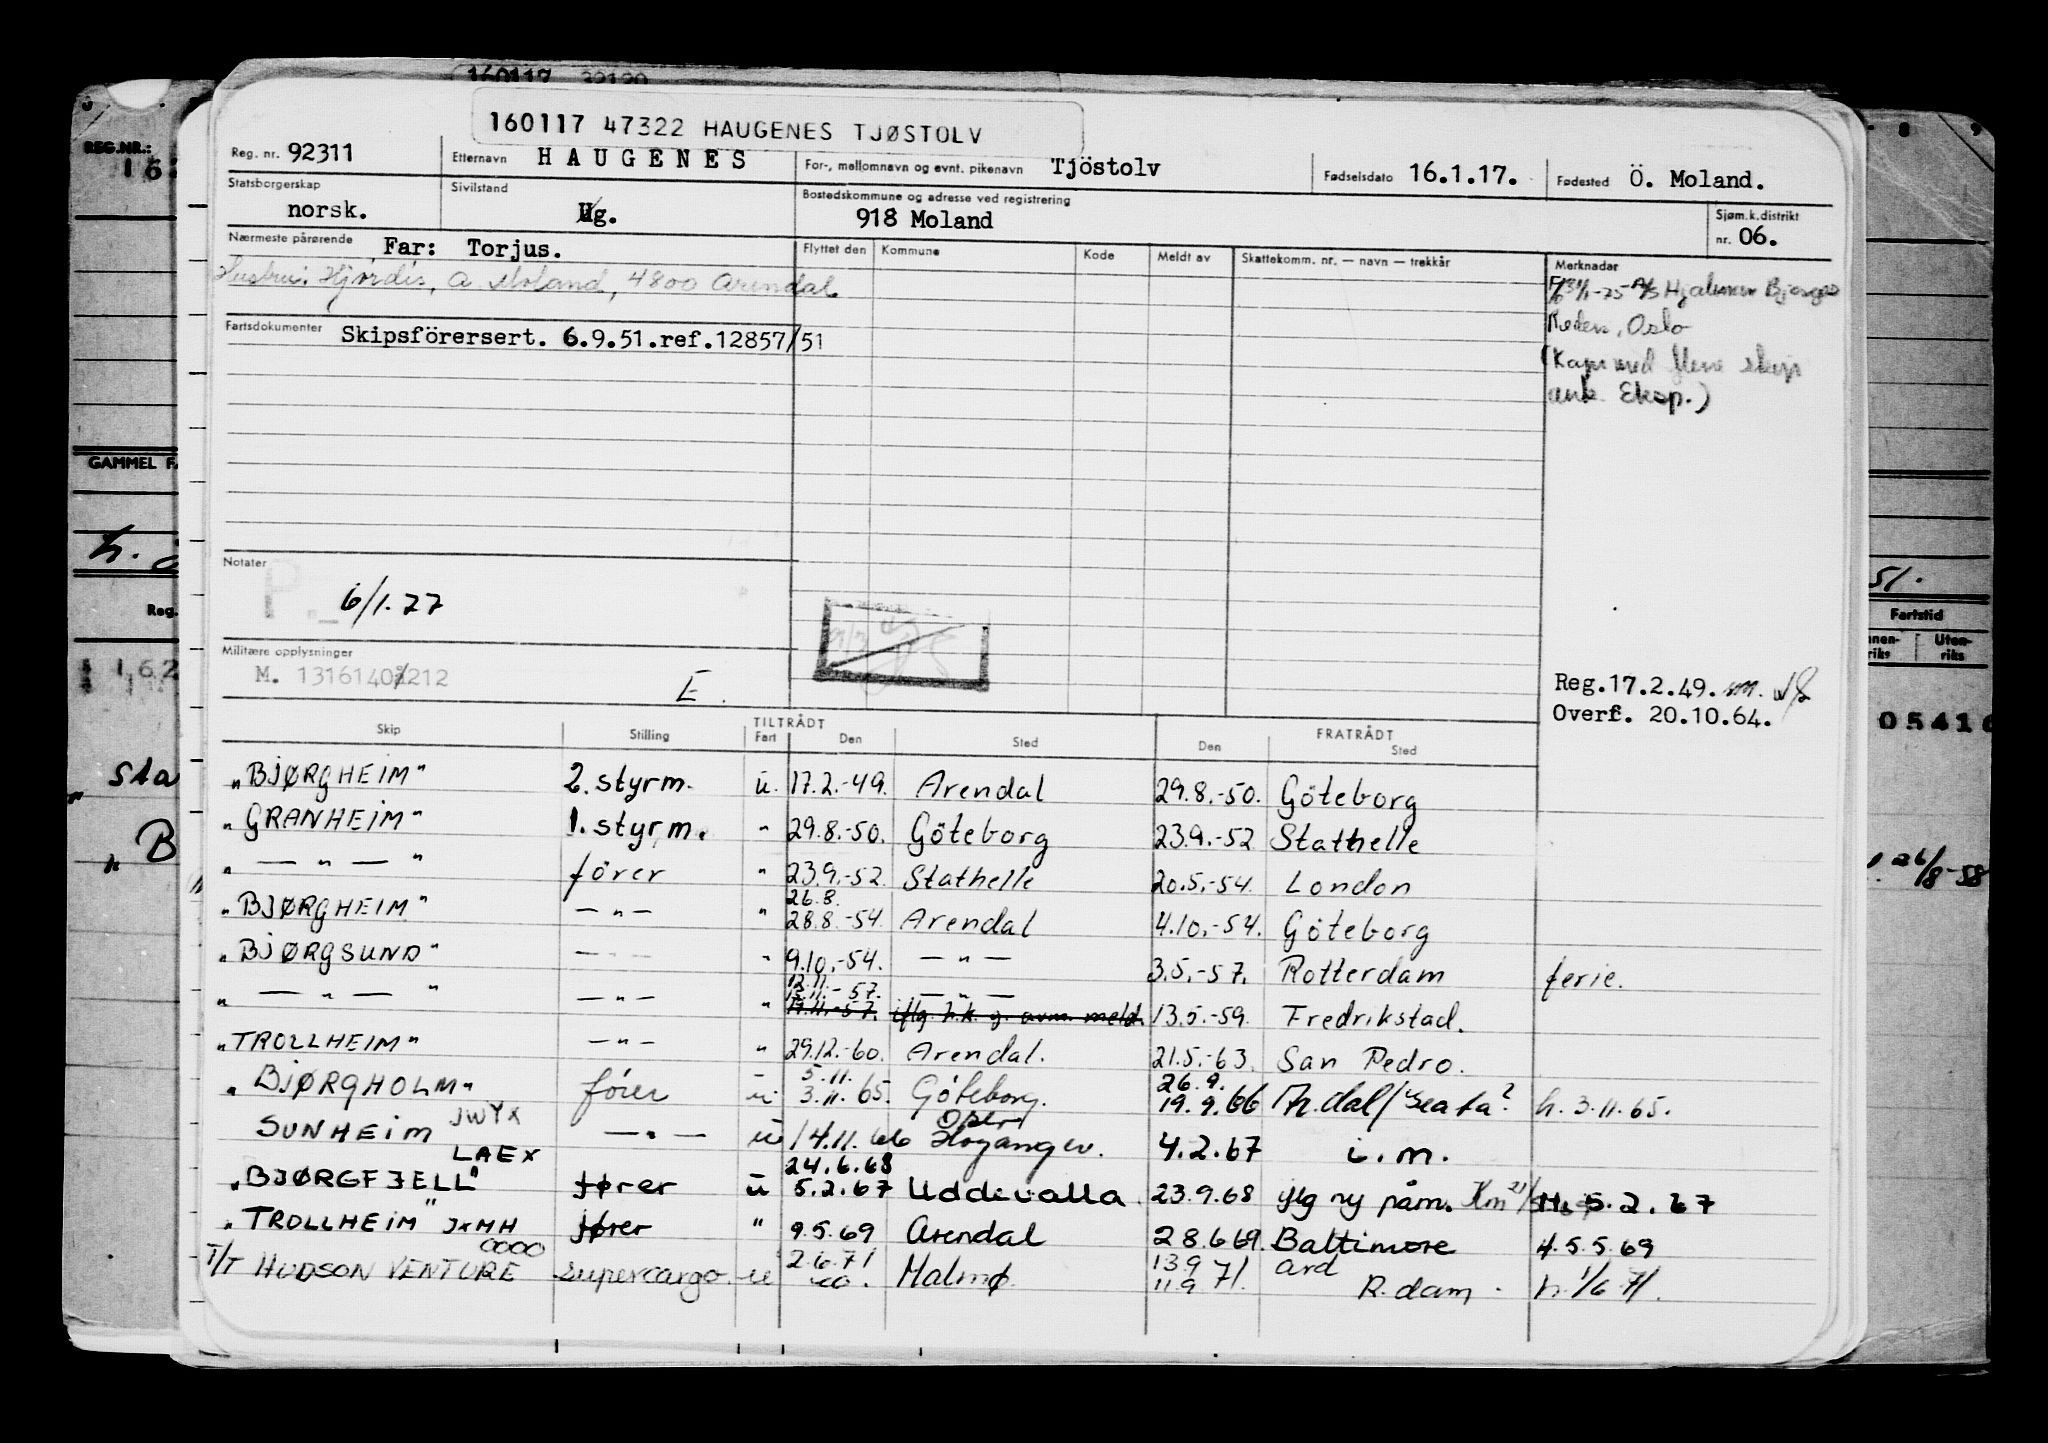 160117 47322 HAUGENES TJØSTOLV
Reg. nr. 92311 Etternavn HAUGENES For-, mellomnavn og evnt. pikenavn Tjöstolv Fødselsdato 16.1.17. Fødested Ö. Moland.
Statsborgerskap norsk. Sivilstand Ug. Bostedskommune og adresse ved registrering 918 Moland Sjøm.k.distrikt nr. 06.
Nærmeste pårørende Far: Torjus. Flyttet den Kommune Kode Meldt av Skattekomm. nr. — navn — trekkår Merknader
Hustru: Hjørdis, A. Moland, 4800 Arendal
A/S Hjalmar Bjørges
Rederi, Oslo
Fartsdokumenter Skipsförersert. 6.9.51.ref.12857/51
(Kapr med flere skip
ank. Eksp.)
Notater
P. 6/1.77
Militære opplysninger
M. 1316140 212 E.
Reg.17.2.49.
Overf. 20.10.64.
Skip Stilling TILTRÅDT Fart Den Sted FRATRÅDT Den Sted
"BJØRGHEIM" 2. styrm. u. 17.2.-49. Arendal 29.8.-50. Göteborg
"GRANHEIM" 1. styrm. " 29.8.-50. Göteborg 23.9.-52 Stathelle
" — " — " förer " 23.9.-52. Stathelle 20.5.-54. London
"BJØRGHEIM" — " — " 26.8. 28.8.-54 Arendal 4.10.-54. Göteborg
"BJØRGSUND" — " — " 9.10.-54. — " — 3.5.-57. Rotterdam ferie.
" — " — " — " — " 12.11. 13.11.-57. — " — 13.5.-59. Fredrikstad.
19.11.-57. iflg h.k. g. avm. meld.
"TROLLHEIM" — " — " 29.12.-60. Arendal. 21.5.-63. San Pedro.
"BJØRGHOLM" fører u 5.11. 3.11.65. Göteborg. 26.9. 19.9.66 h. 3.11.65.
SUNHEIM JWYX — " — u 14.11.66 Høyanger. 4.2.67 i.m.
LAEX
"BJØRGFJELL" fører u 24.6.68 5.2.67 Uddevalla 23.9.68 iflg ny påm. H. 5.2.67
"TROLLHEIM" JXMH fører " 9.5.69 Arendal 28.6.69. Baltimore 4.5.5.69
T/T HUDSON VENTURE OOOO supercargo u 2.6.71 Malmø 13.9 11.9 71. R.dam. h. 1/6 71.
REG.NR.:
162
GAMMEL FA
Reg.
162
Sta
"B
51.
Fartstid
Uten-
riks
05416
26/8-58